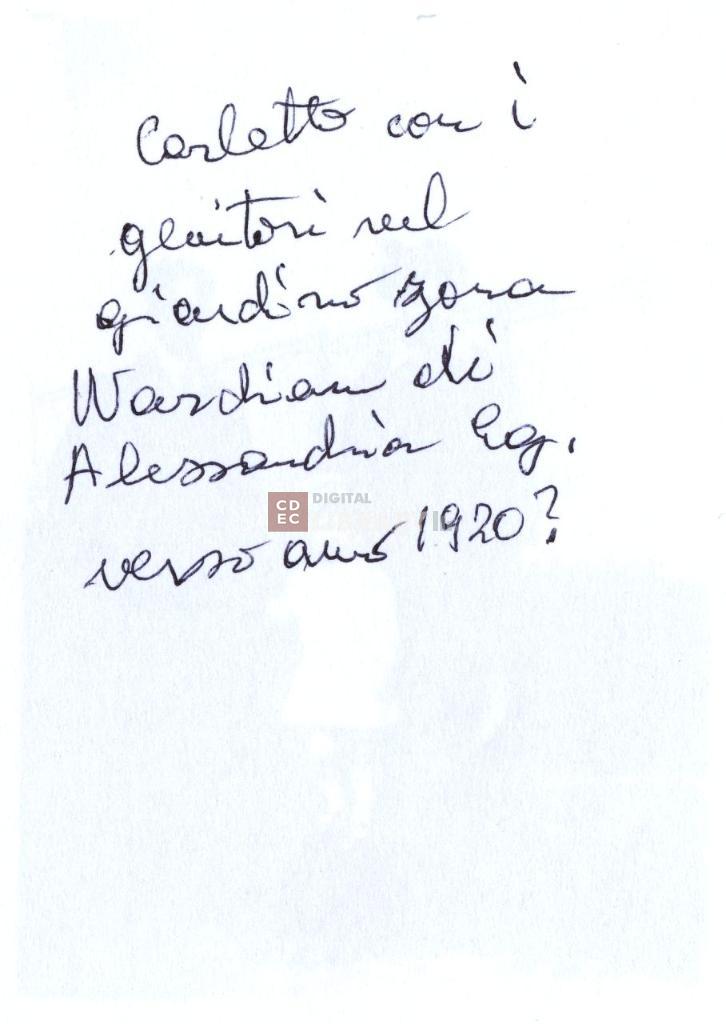 Carletto con i
genitori nel
giardino zona
Wardian di
Alessandria Eg.
CD
EC
DIGITAL
verso anno 1920?